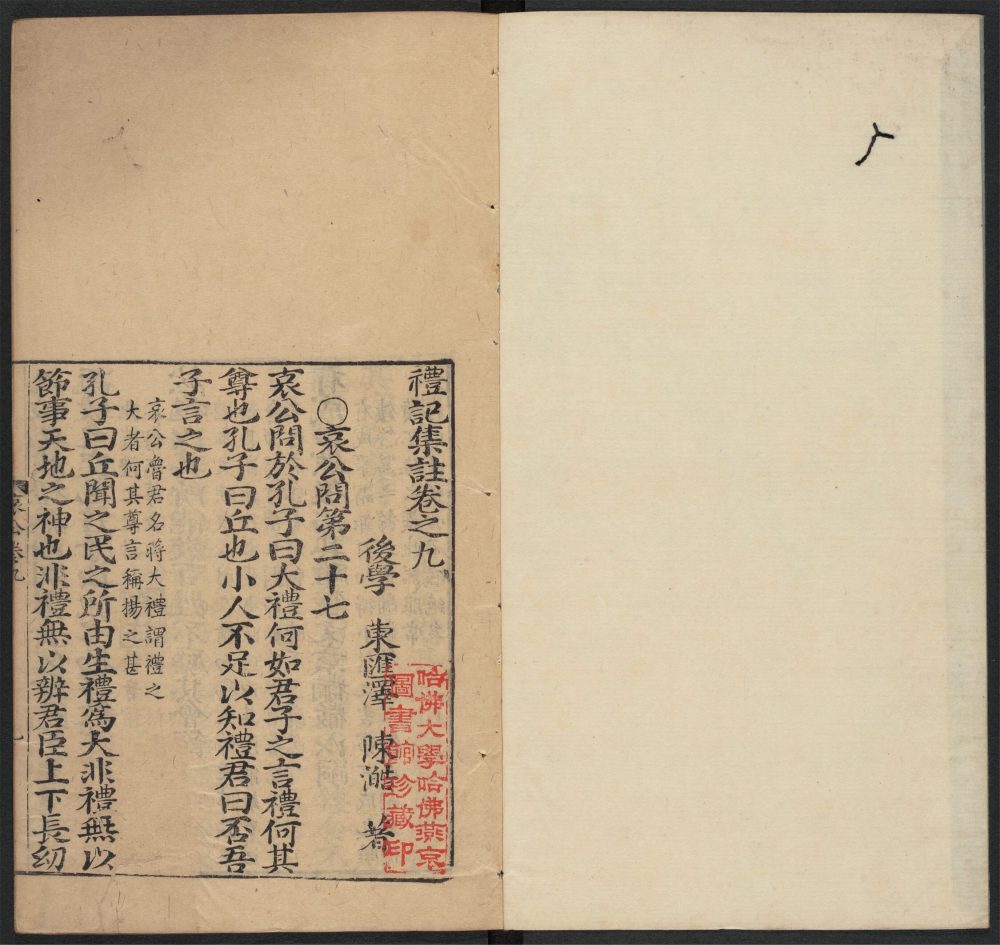 禮記集註卷之九
後學 東匯澤 陳澔 著
○哀公問第二十七
哀公問於孔子曰大禮何如君子之言禮何其
尊也孔子曰丘也小人不足以知禮君曰否吾
子言之也
哀公魯君名蔣大禮謂禮之
大者何其尊言稱揚之甚
孔子曰丘聞之民之所由生禮爲大非禮無以
節事天地之神也非禮無以辨君臣上下長幼
哈佛大學哈佛燕京
圖書館珍藏印